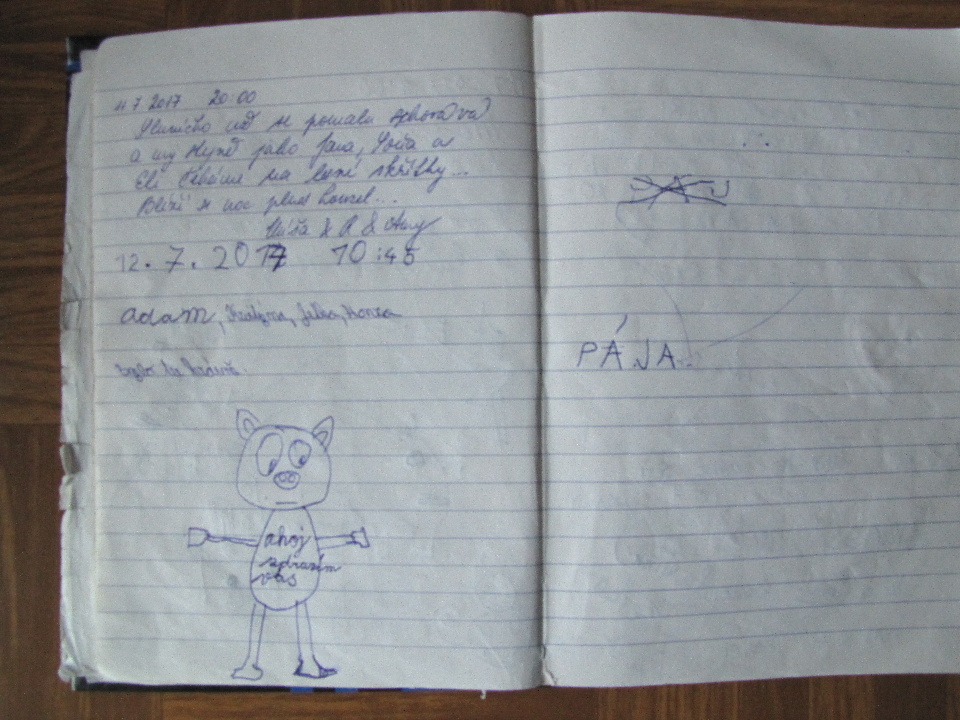 11 7 2017 20:00
Sluníčko už se pomalu schovává
a my stejně jako Jana,
Eli čekáme na lesní skřítky...
Blíží se noc plná kouzel...
Míša & A & Amy
12. 7. 2017 10:45
adam, Kristýna, Jelka, Honza
bylo to krásné.
ahoj
zdravím
vás
PÁJA.